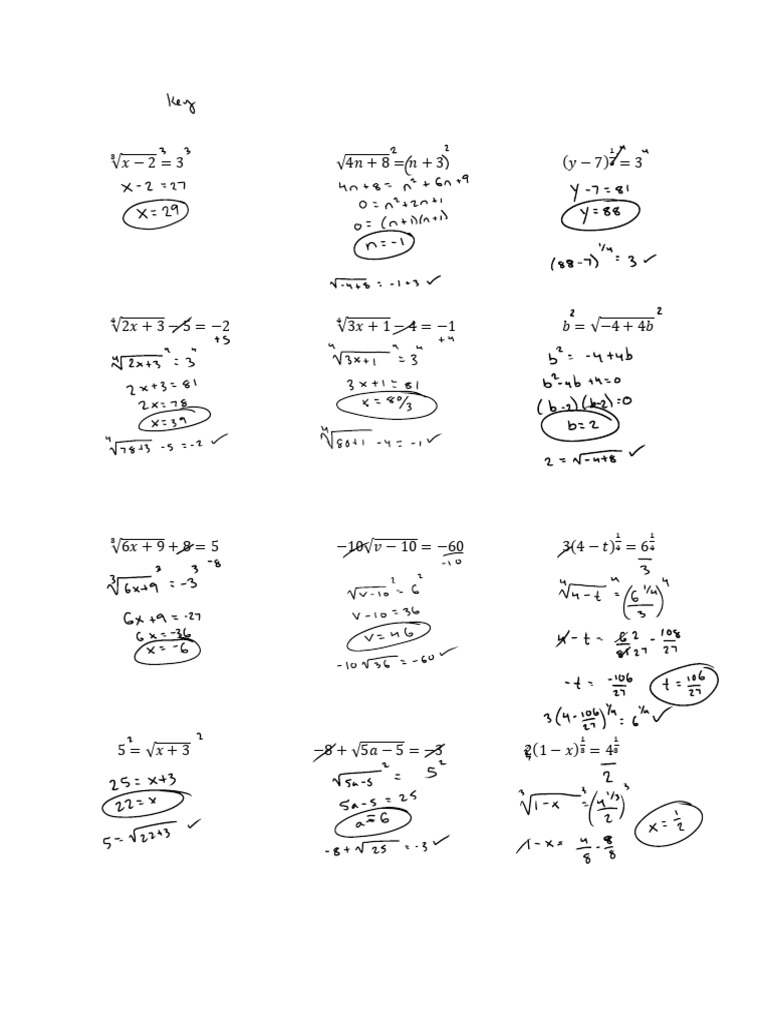 Key
∛(x − 2)³ = 3³
x - 2 = 27
x = 29
√(4n + 8)² = (n + 3)²
4n + 8 = n² + 6n + 9
0 = n² + 2n + 1
0 = (n+1)(n+1)
n = -1
√-4+8 = -1+3 ✓
(y − 7)^(1/4)⁴ = 3⁴
y - 7 = 81
y = 88
(88-7)^(1/4) = 3 ✓
∜(2x + 3) − 5 = −2
+5
∜(2x+3)⁴ = 3⁴
2x+3 = 81
2x = 78
x = 39
∜(78+3) - 5 = -2 ✓
∜(3x + 1) − 4 = −1
+4
∜(3x+1)⁴ = 3⁴
3x+1 = 81
x = 80/3
∜(80+1) - 4 = -1 ✓
b² = √(−4 + 4b)²
b² = -4+4b
b² - 4b + 4 = 0
(b-2)(b-2) = 0
b = 2
2 = √(-4+8) ✓
∛(6x + 9) + 8 = 5
-8
∛(6x+9)³ = -3³
6x+9 = -27
6x = -36
x = -6
−10√(v − 10) = −60
-10
√(v-10)² = 6²
v-10 = 36
v = 46
-10√36 = -60 ✓
3(4 − t)^(1/4) = 6^(1/4)
3
∜(4-t)⁴ = (6^(1/4)/3)⁴
4 - t = 6/81 2/27 - 108/27
-t = -106/27
t = 106/27
3(4 - 106/27)^(1/4) = 6^(1/4) ✓
5² = √(x + 3)²
25 = x+3
22 = x
5 = √(22+3) ✓
−8 + √(5a − 5) = −3
√(5a-5)² = 5²
5a-5 = 25
a = 6
-8 + √25 = -3 ✓
2(1 − x)^(1/3) = 4^(1/3)
2
∛(1-x)³ = (4^(1/3)/2)³
1 - x = 4/8 - 8/8
x = 1/2